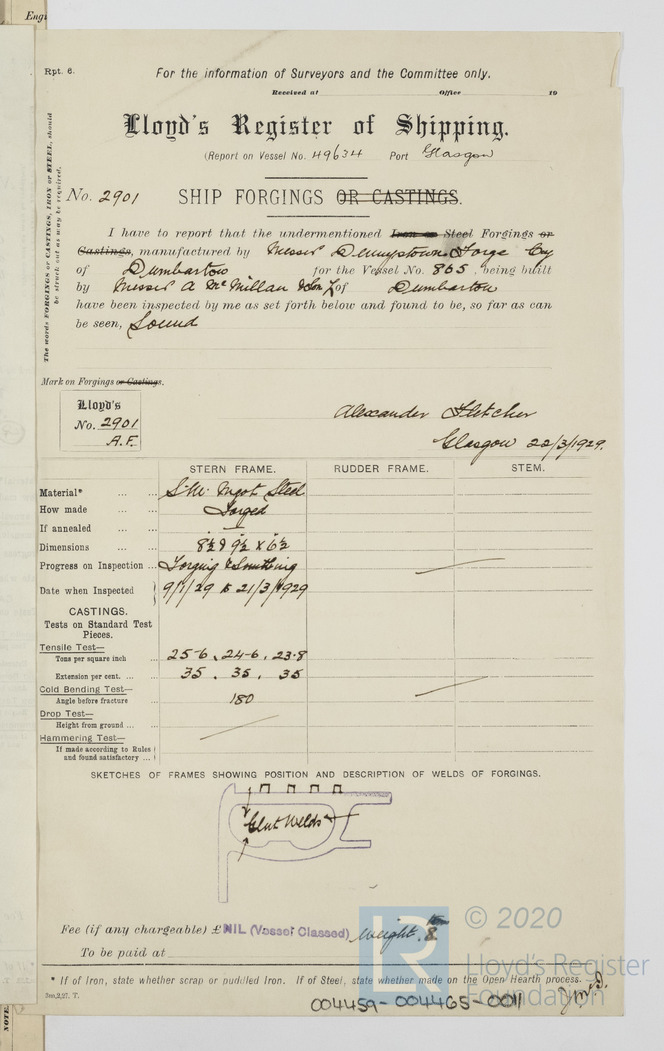 Engi
Rpt. 6.
For the information of Surveyors and the Committee only.
Received at Office 19
Lloyd's Register of Shipping.
(Report on Vessel No. 49634 Port Glasgow
No. 2901 SHIP FORGINGS OR CASTINGS.
The words FORGINGS or CASTINGS, IRON or STEEL, should
be struck out as may be required.
I have to report that the undermentioned Iron or Steel Forgings or
Castings, manufactured by Messrs Dennystown Forge Coy
of Dumbarton for the Vessel No. 865, being built
by Messrs A McMillan & Son Ld of Dumbarton
have been inspected by me as set forth below and found to be, so far as can
be seen, Sound
Mark on Forgings or Castings.
Lloyd's
No. 2901
A.F.
Alexander Fletcher
Glasgow 22/3/1929.
STERN FRAME. RUDDER FRAME. STEM.
Material* ... ... S.M. Ingot Steel
How made ... ... Forged
If annealed ... ...
Dimensions ... ... 8½ & 9½ x 6½
Progress on Inspection ... Forging & Smithing
Date when Inspected 9/1/29 to 21/3/1929
CASTINGS.
Tests on Standard Test
Pieces.
Tensile Test—
Tons per square inch ... 25.6, 24.6, 23.8
Extension per cent. ... ... 35 . 35 . 35
Cold Bending Test—
Angle before fracture ... 180
Drop Test—
Height from ground ... ...
Hammering Test—
If made according to Rules
and found satisfactory ...
SKETCHES OF FRAMES SHOWING POSITION AND DESCRIPTION OF WELDS OF FORGINGS.
Glut Welds
Fee (if any chargeable) £ NIL (Vessel Classed) weight 8 tons
To be paid at
* If of Iron, state whether scrap or puddled Iron. If of Steel, state whether made on the Open Hearth process.
2m,2,27. T.
004459-004465-0011
NOTE
LR
© 2020
Lloyd's Register
Foundation